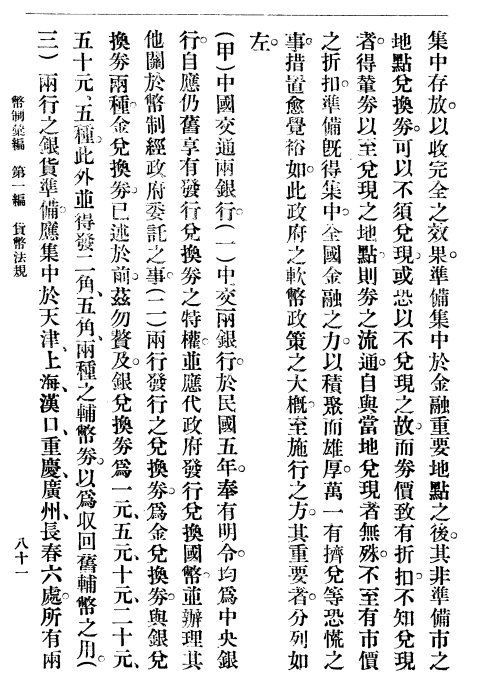 集中存放。以收完全之效果。準備集中於金融重要地點之後。其非準備市之
地點兌換券。可以不須兌現。或恐以不兌現之故。而券價致有折扣。不知兌現
者。得輦券以至兌現之地點。則券之流通。自與當地兌現者無殊。不至有市價
之折扣。準備旣得集中。全國金融之力。以積聚而雄厚。萬一有擠兌等恐慌之
事。措置愈覺裕如。此政府之軟幣政策之大槪。至施行之方。其重要者。分列如
左。
(甲)中國交通兩銀行。(一)中交兩銀行。於民國五年。奉有明令。均爲中央銀
行。自應仍舊享有發行兌換券之特權。並應代政府發行兌換國幣。並辦理其
他關於幣制經政府委託之事。(二)兩行發行之兌換券。爲金兌換券。與銀兌
換券兩種。金兌換券。已述於前。茲勿贅及。銀兌換券爲一元、五元、十元、二十元、
五十元、五種。此外並得發二角、五角、兩種之輔幣券。以爲收回舊輔幣之用。(
三)兩行之銀貨準備。應集中於天津、上海、漢口、重慶、廣州、長春六處。所有兩
幣制彙編 第一編 貨幣法規 八十一